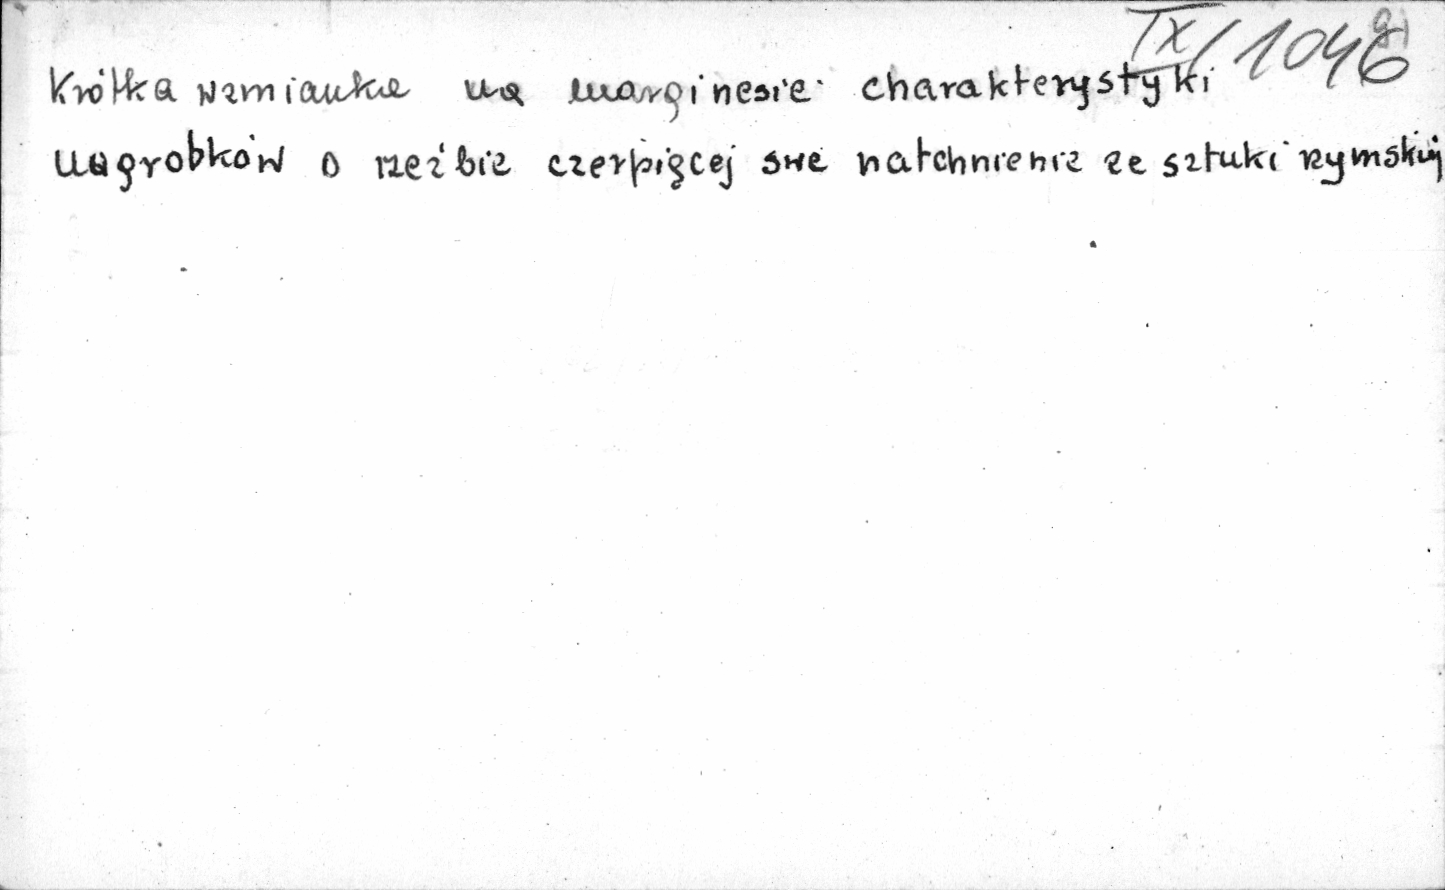 IX/1046
Krótka wzmianka na marginesie charakterystyki
nagrobków o rzeźbie czerpiącej swe natchnienie ze sztuki rzymskiej